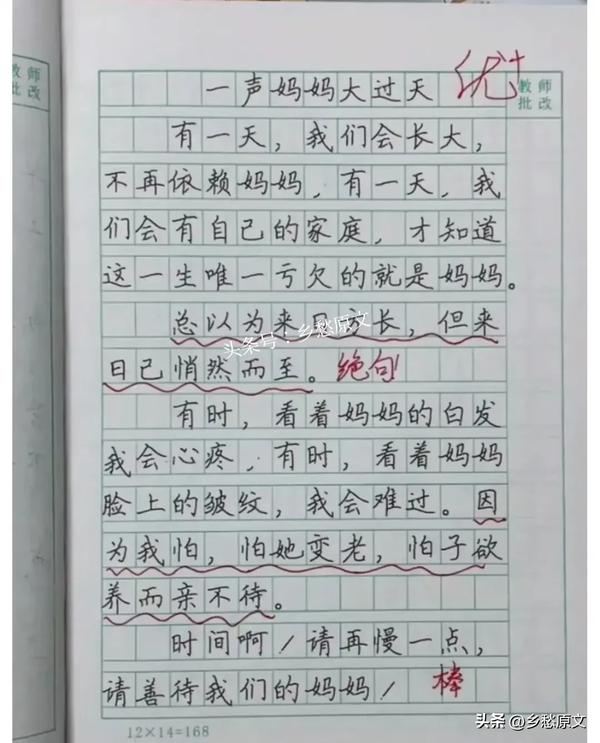 一声妈妈大过天 优+
教师
批改
教师
批改
有一天，我们会长大，
不再依赖妈妈，有一天，我
们会有自己的家庭，才知道
这一生唯一亏欠的就是妈妈。
总以为来日方长，但来
头条号：乡愁原文
日已悄然而至。绝句！
有时，看着妈妈的白发
我会心疼，有时，看着妈妈
脸上的皱纹，我会难过。因
为我怕，怕她变老，怕子欲
养而亲不待。
时间啊！请再慢一点，
请善待我们的妈妈！ 棒
12×14=168
头条 @乡愁原文